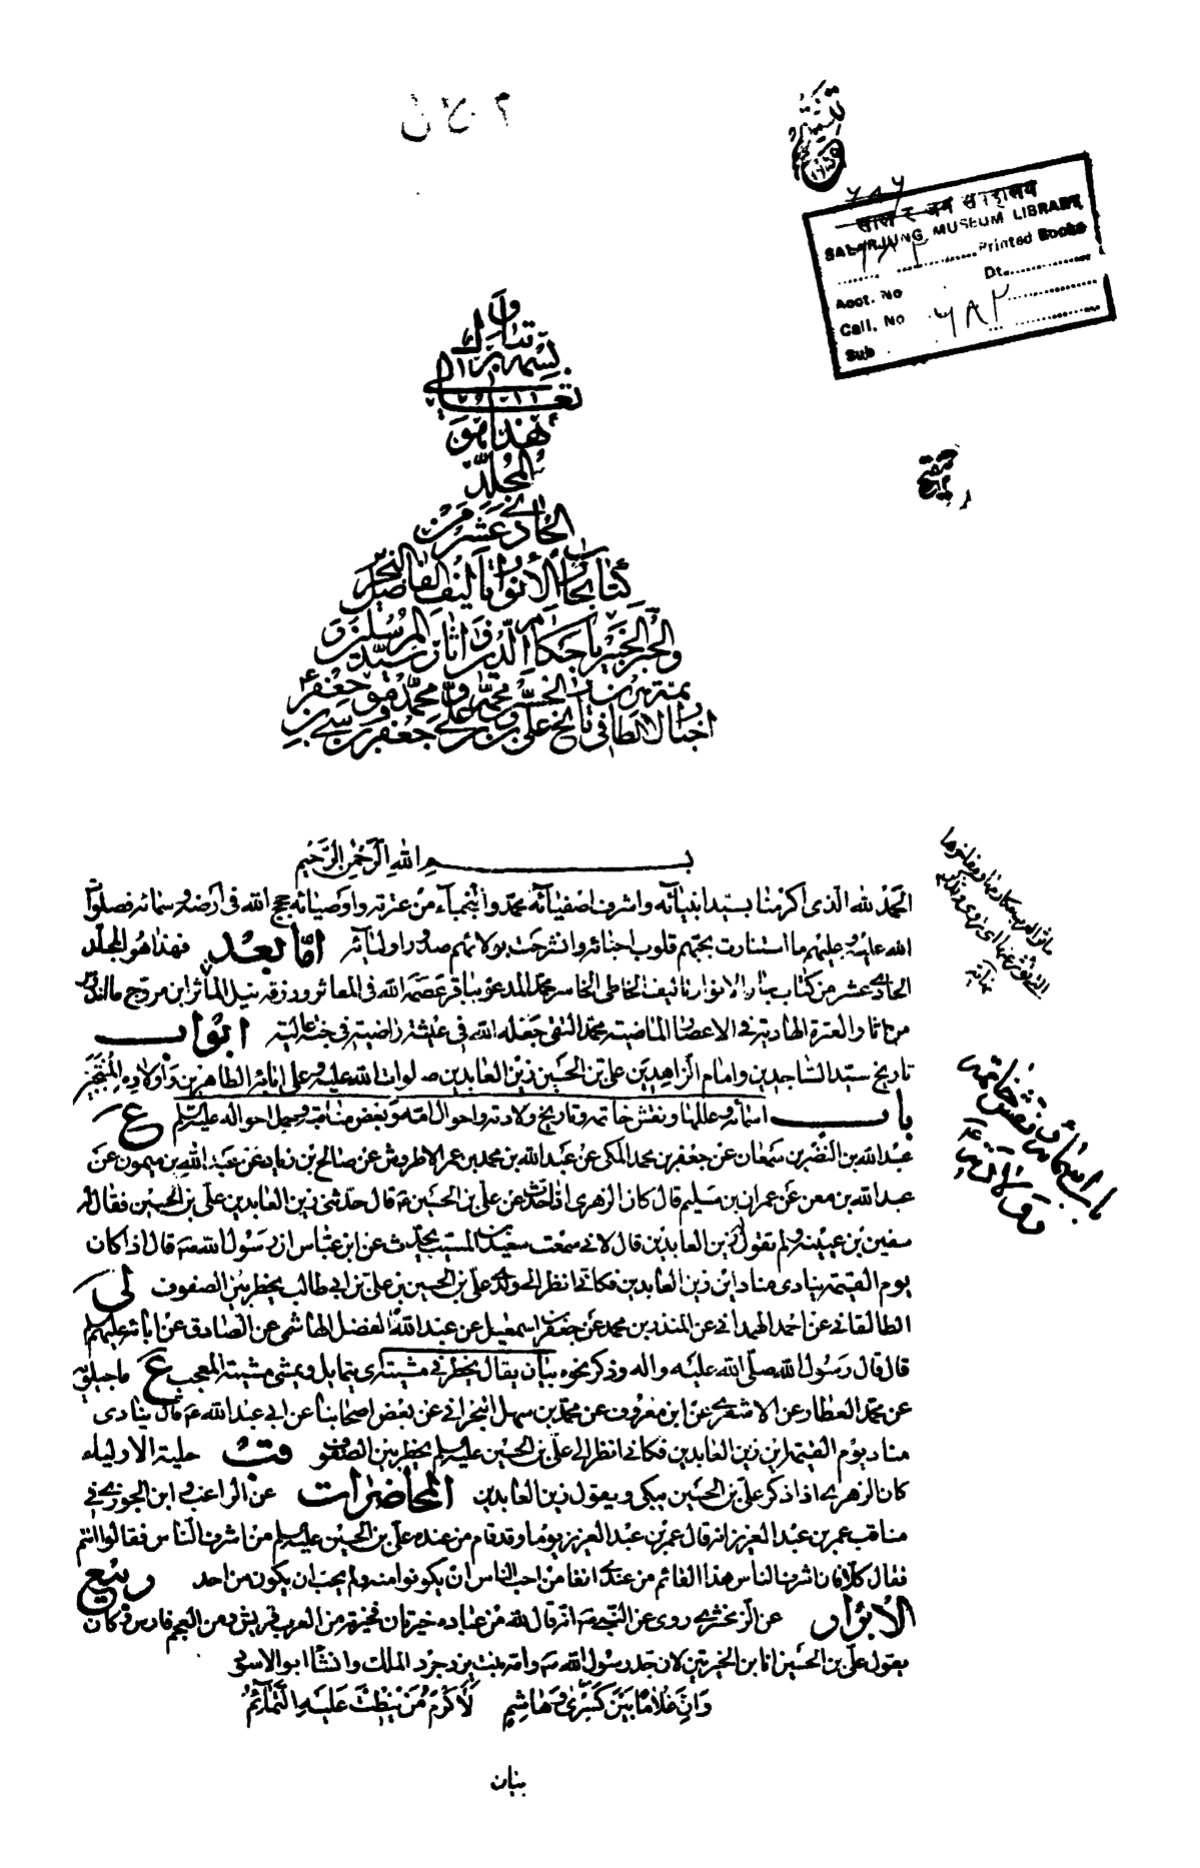 सालार जंग संग्रहालय
SALARJUNG MUSEUM LIBRARY
Printed Books
Acct. No Dt.
Call. No ٦٨٢
Sub
بسمه تبارك و
تعالى
هذا هو
المجلد
الحادي عشر من
كتاب بحار الأنوار تأليف الفاضل النحرير
والحبر الخبير
بسم الله الرحمن الرحيم
الحمد لله الذي اكرمنا بسيد انبيائه واشرف اصفيائه محمد والنجباء من عترته واوصيائه حجج الله في ارضه وسمائه فصلوات
الله عليه وعليهم ما استنارت بحبهم قلوب احبائه وانشرحت بولائهم صدور اوليائه اما بعد فهذا هو المجلد
الحادي عشر من كتاب بحار الانوار تاليف الخاطي الخاسر محمد المدعو بباقر عصمه الله في المعاثر ورزقه نيل المآثر ابن مروج ما اندرس
من آثار العترة الهادية في الاعصار الماضية محمد التقي جعله الله في عيشة راضية في جنة عالية ابواب
تاريخ سيد الساجدين وامام الزاهدين علي بن الحسين زين العابدين صلوات الله عليه وعلى آبائه الطاهرين واولاده المنتجبين
باب اسمائه وعللها ونقش خاتمه وتاريخ ولادته واحوال امه وبعض مناقبه وجمل احواله عليه السلم ع
عبد الله بن النضر بن سمعان عن جعفر بن محمد المكي عن عبد الله بن محمد بن عمر الاطروش عن صالح بن زياد عن عبد الله بن ميمون عن
عبد الله بن معن عن عمران بن سليم قال كان الزهري اذا حدث عن علي بن الحسين ع قال حدثني زين العابدين علي بن الحسين فقال له
سفين بن عيينة ولم تقول زين العابدين قال لاني سمعت سعيد بن المسيب يحدث عن ابن عباس ان رسول الله ص قال اذا كان
يوم القيمة ينادي مناد اين زين العابدين فكاني انظر الى ولدي علي بن الحسين بن علي بن ابي طالب يخطر بين الصفوف لي
الطالقاني عن احمد الهمداني عن المنذر بن محمد عن جعفر بن اسمعيل عن عبد الله بن الفضل الهاشمي عن الصادق عن ابائه عليهم السلم
قال قال رسول الله صلى الله عليه واله وذكر نحوه بيان يقال يخطر في مشيته اي يتمايل ويمشي مشية المعجب ع ماجيلويه
عن محمد العطار عن الاشعري عن ابن معروف عن محمد بن سهل البحراني عن بعض اصحابنا عن ابي عبد الله ع قال ينادي
مناد يوم القيمة اين زين العابدين فكاني انظر الى علي بن الحسين عليه السلم يخطر بين الصفوف قب حلية الاولياء
كان الزهري اذا ذكر علي بن الحسين يبكي ويقول زين العابدين المحاضرات عن الراغب وابن الجوزي في
مناقب عمر بن عبد العزيز انه قال عمر بن عبد العزيز يوما وقد قام من عنده علي بن الحسين عليه السلم من اشرف الناس فقالوا انتم
فقال كلا فان اشرف الناس هذا القائم من عندي انفا من احب الناس ان يكونوا منه ولم يحب ان يكون من احد ربيع
الابرار عن الزمخشري روي عن النبي ص انه قال لله من عباده خيرتان فخيرته من العرب قريش ومن العجم فارس وكان
يقول علي بن الحسين انا ابن الخيرتين لان جده رسول الله ص وامه بنت يزدجرد الملك وانشا ابو الاسود
وان غلاما بين كسرى وهاشم لاكرم من نيطت عليه التمائم
باب اسمائه ونقش خاتمه
وولادته
بيان